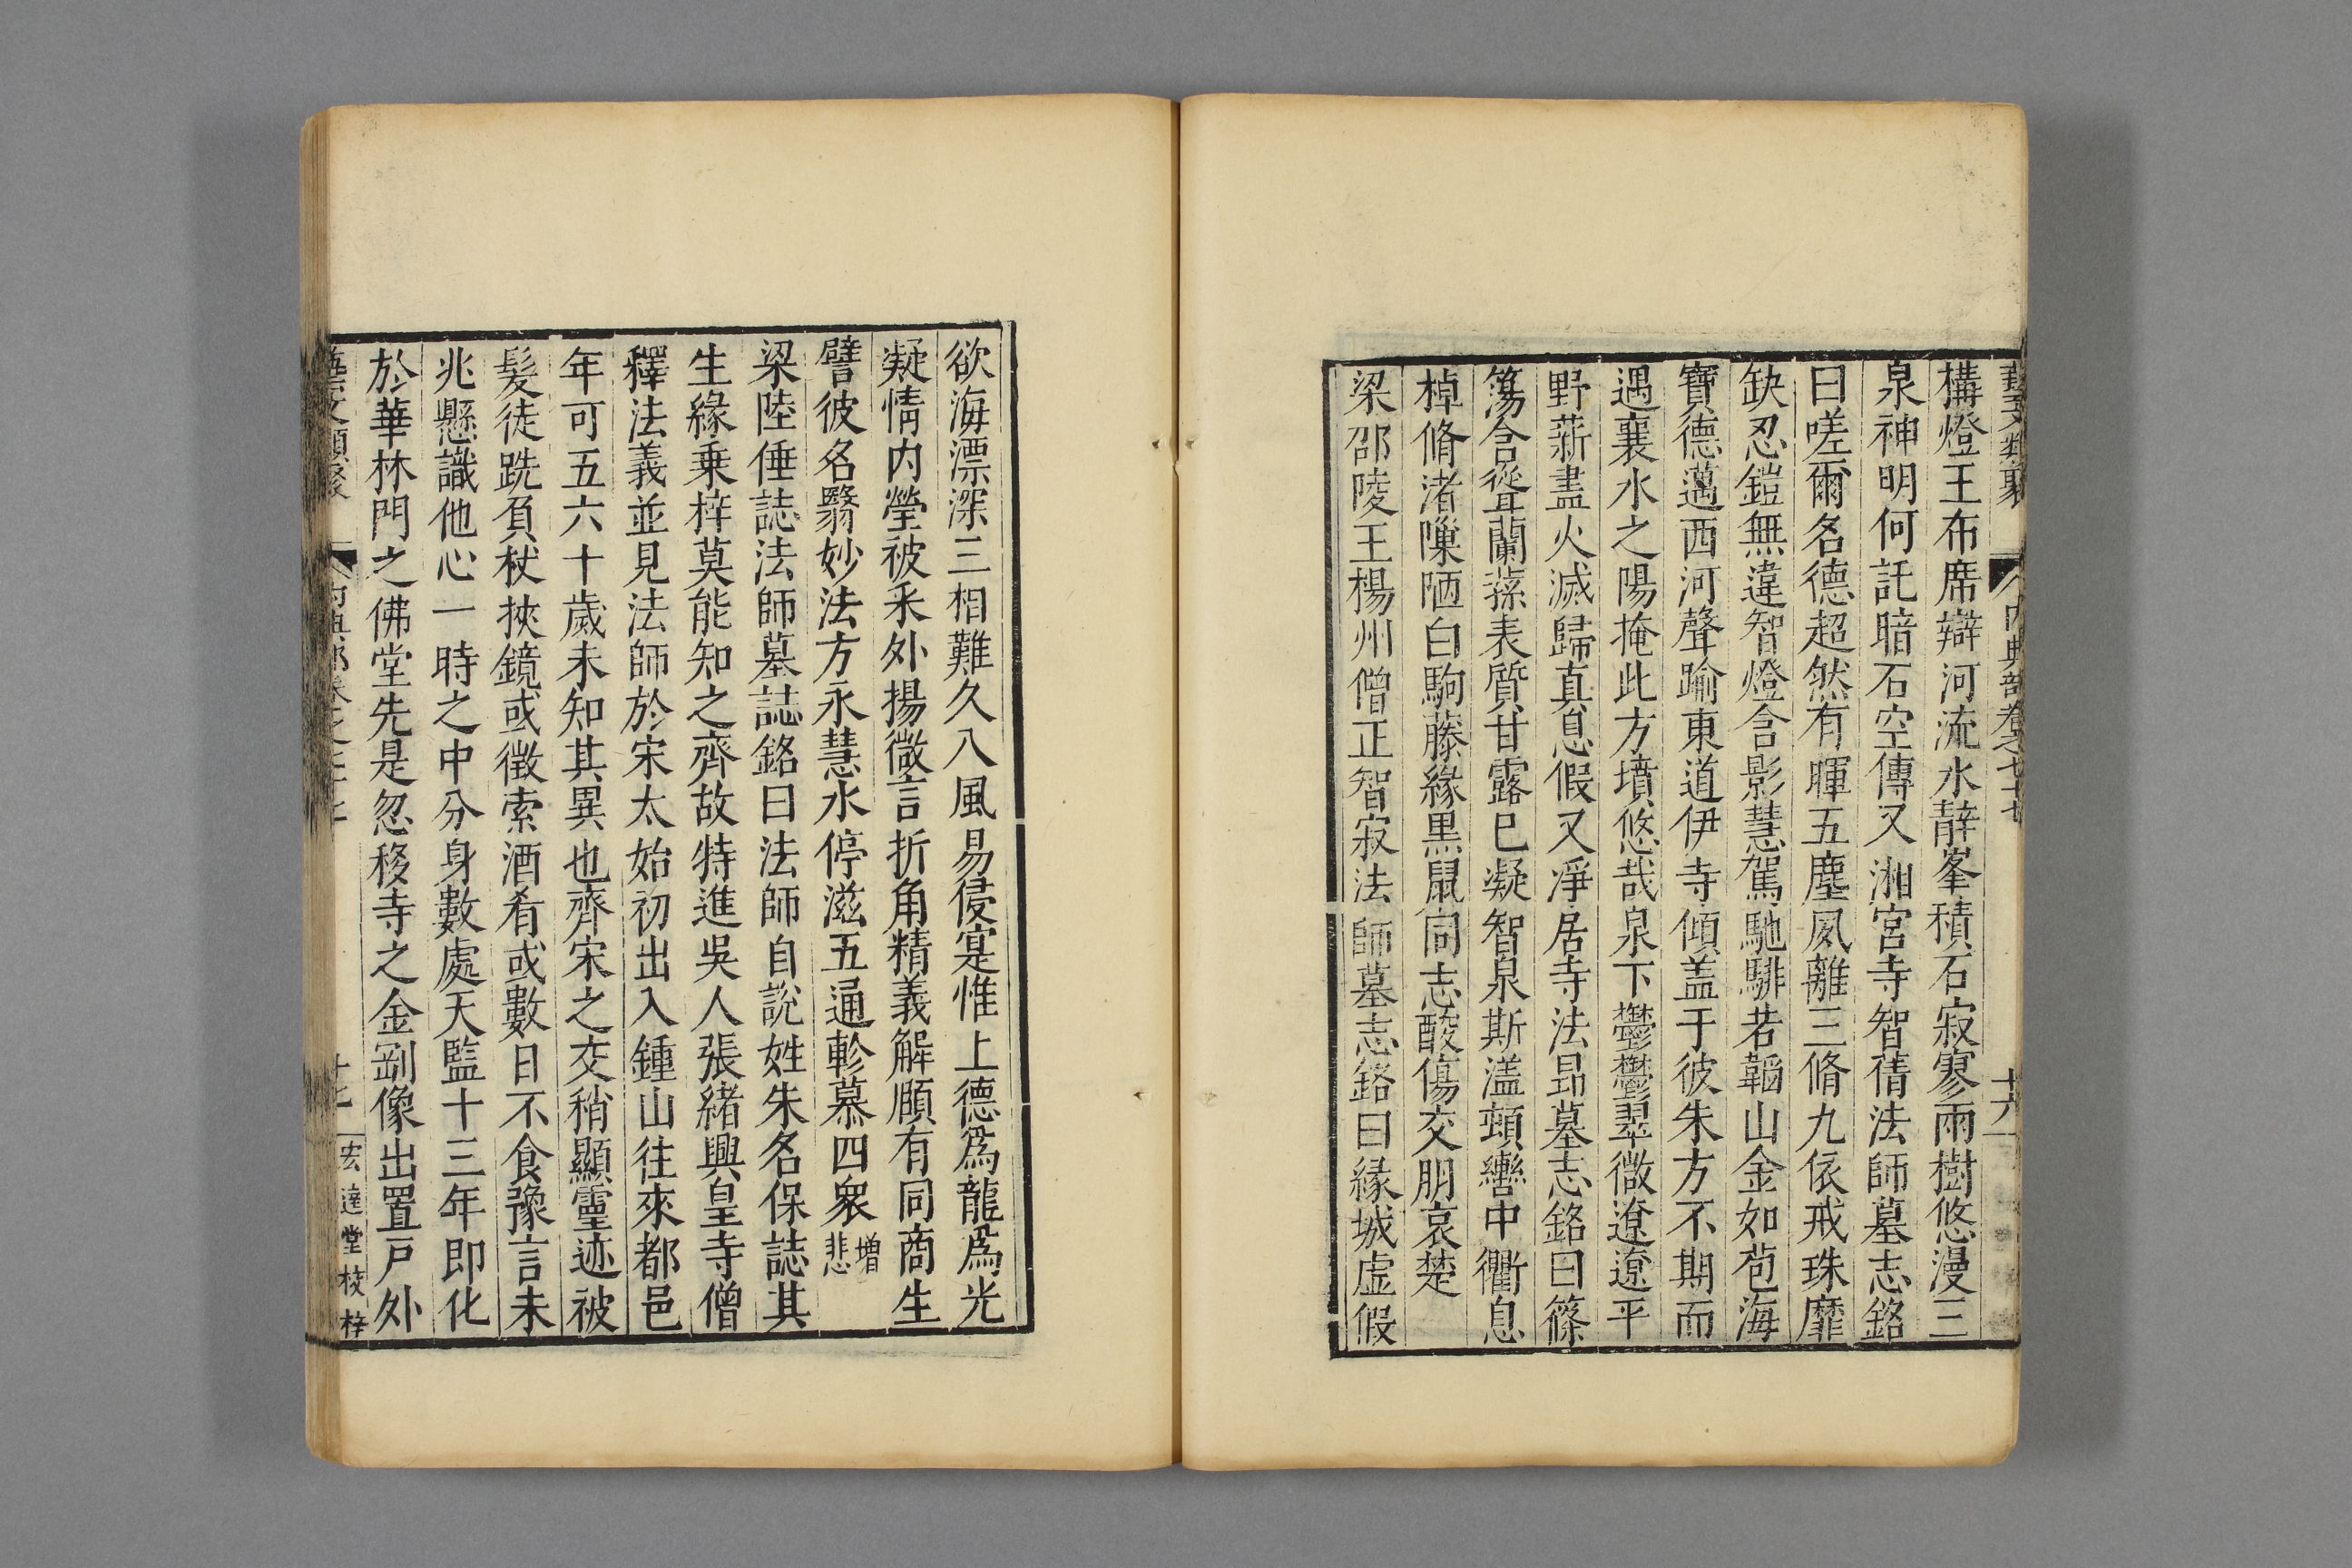 藝文類聚 內典部卷之七十七 十六
構燈王布席辯河流水辭峯積石寂寥雨樹悠漫三
泉神明何託暗石空傳又湘宮寺智蒨法師墓志銘
曰嗟爾名德超然有暉五塵夙離三脩九依戒珠靡
缺忍鎧無違智燈含影慧駕馳騑若韞山金如苞海
寶德邁西河聲踰東道伊寺傾盖于彼朱方不期而
遇襄水之陽掩此方墳悠哉泉下鬱鬱翠微遼遼平
野薪盡火滅歸真息假又淨居寺法昻墓志銘曰篠
簜含聳蘭蓀表質甘露巳凝智泉斯溢頓轡中衢息
棹脩渚嘷陋白駒藤緣黒鼠同志酸傷交朋哀楚
梁邵陵王楊州僧正智寂法師墓志銘曰緣城虛假
欲海漂深三相難久八風易侵寔惟上德爲龍爲光
凝情內瑩被釆外揚微言折角精義解頤有同商生
譬彼名翳妙法方永慧水停滋五通軫慕四衆增悲
梁陸倕誌法師墓誌銘曰法師自說姓朱名保誌其
生緣乗梓莫能知之齊故特進吳人張緒興皇寺僧
釋法義並見法師於宋太始初出入鍾山往來都邑
年可五六十歲未知其異也齊宋之交稍顯靈迹被
髮徒跣負杖挾鏡或徵索酒肴或數日不食豫言未
兆懸識他心一時之中分身數處天監十三年即化
於華林門之佛堂先是忽移寺之金剛像出置戸外
藝文類聚 內典部卷之七十七 十七 宏達堂校梓